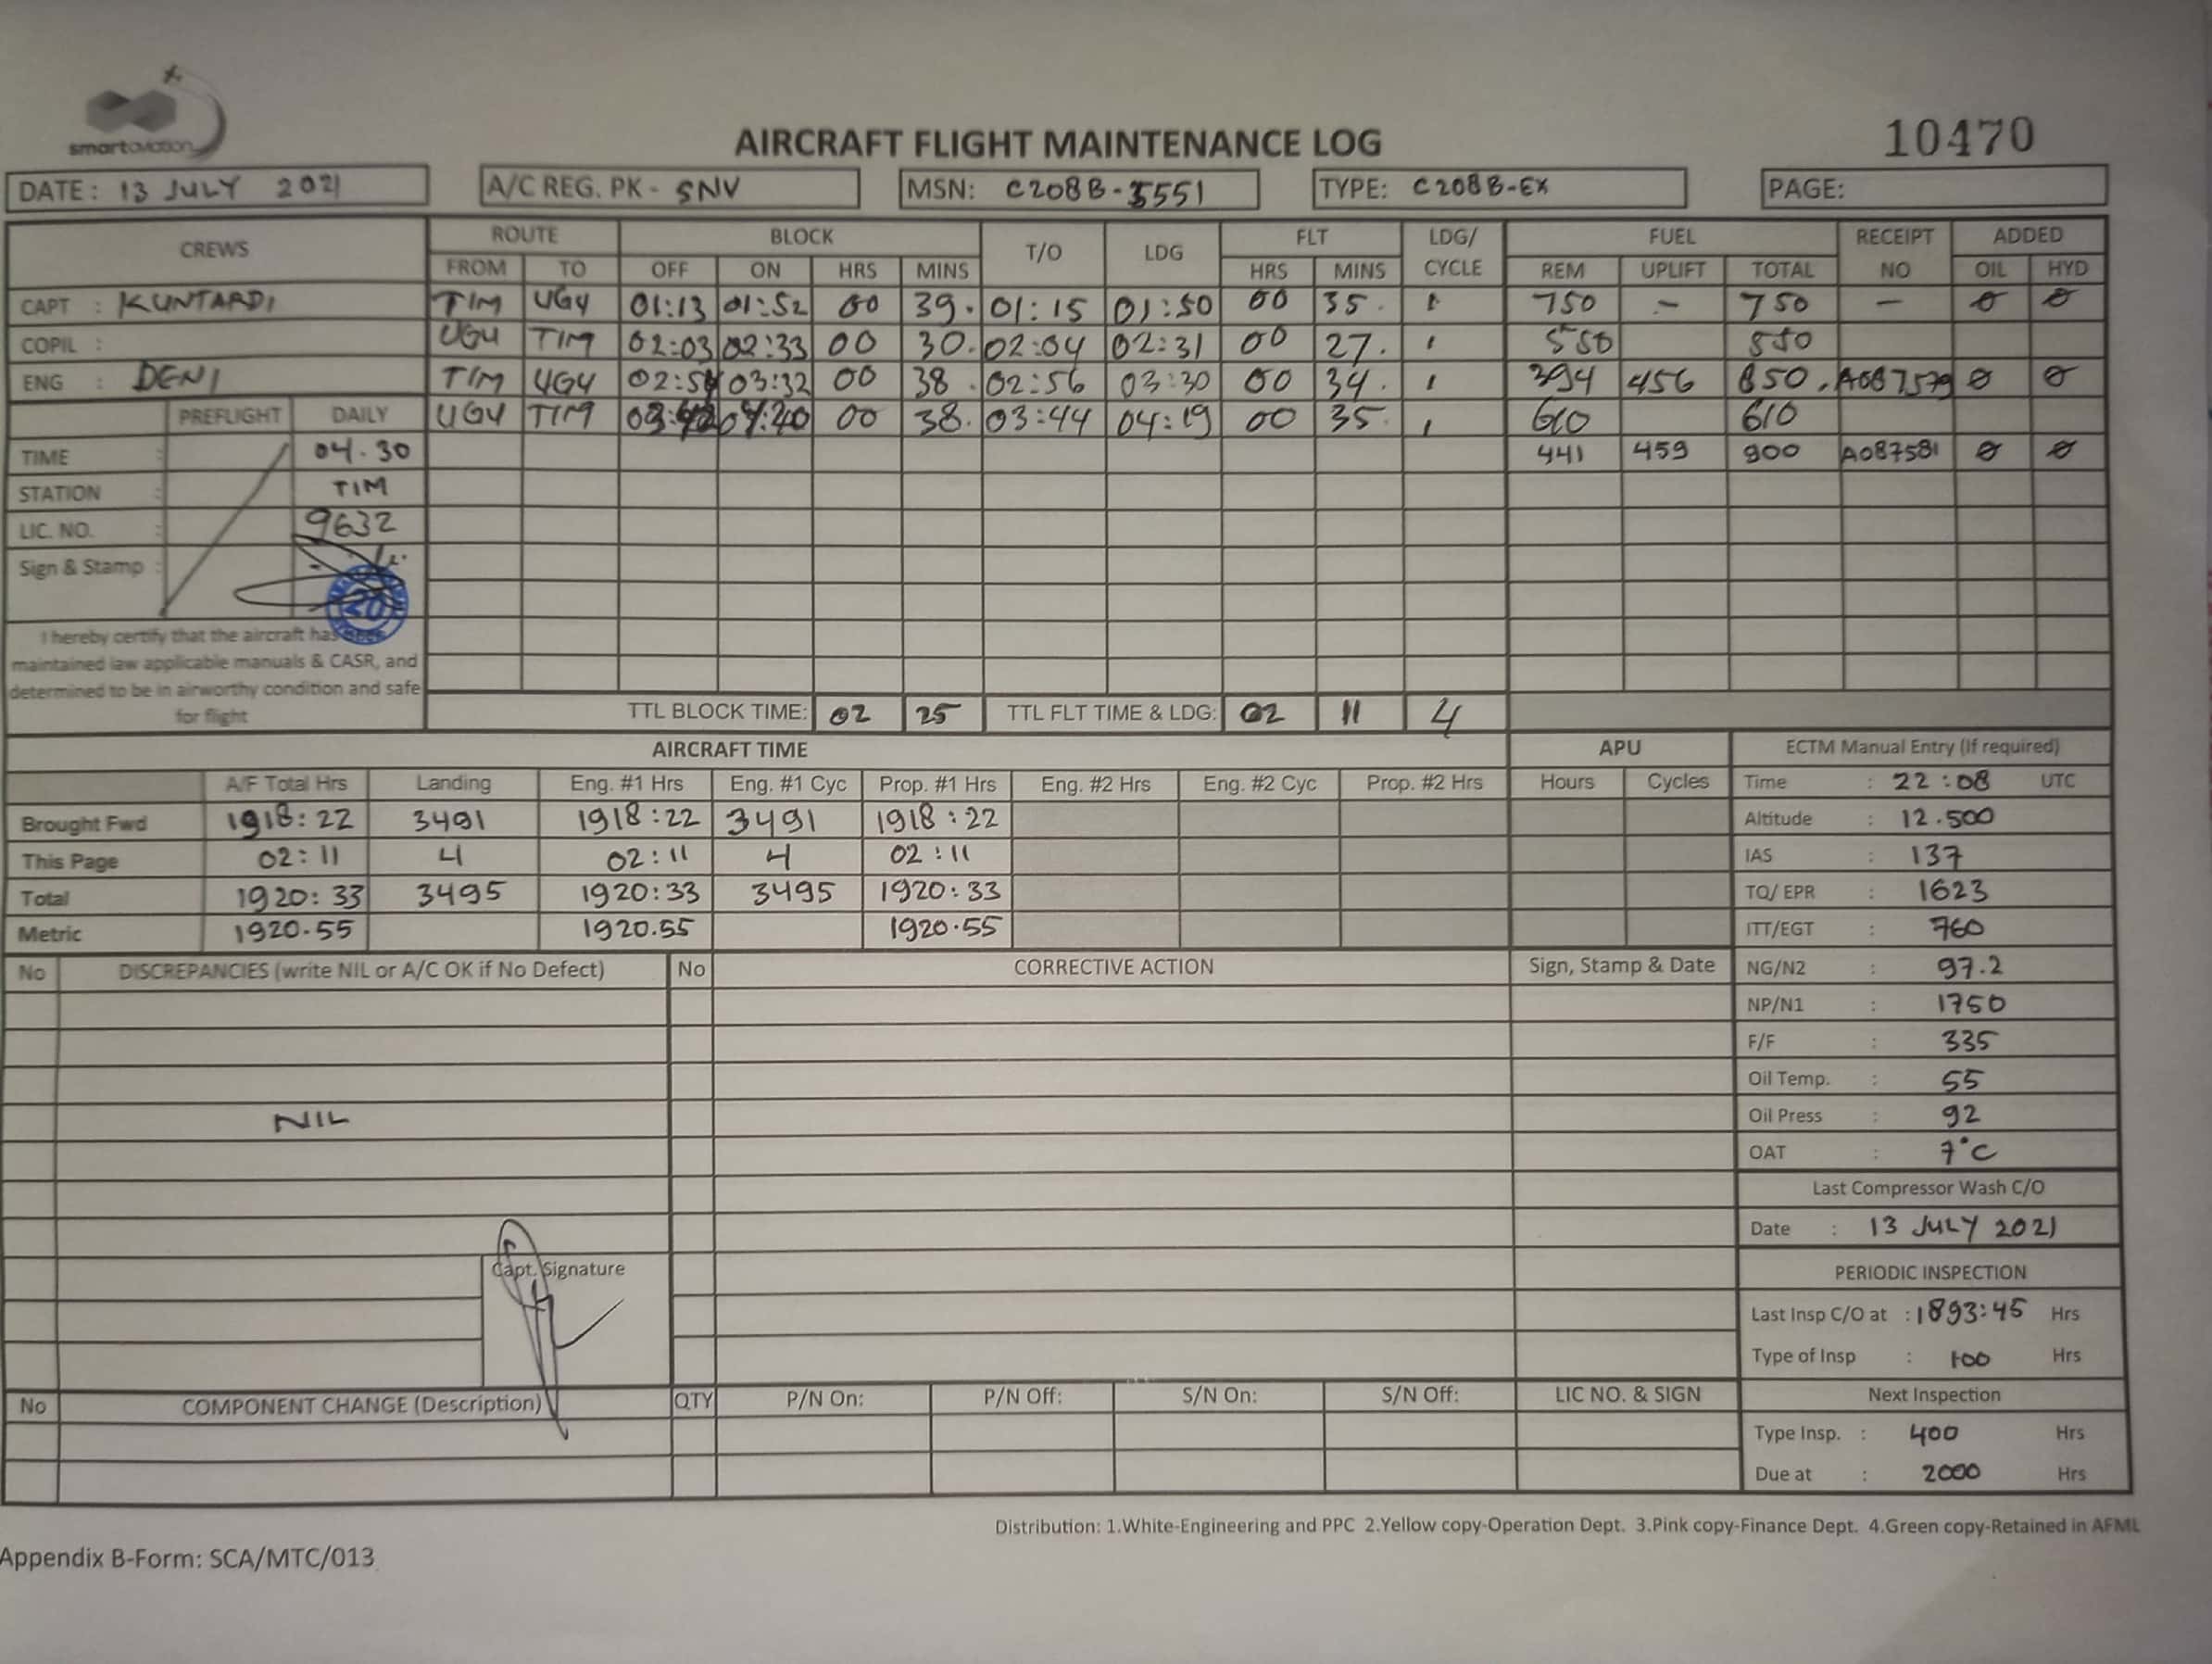 smartaviation
AIRCRAFT FLIGHT MAINTENANCE LOG
10470
DATE: 13 JULY 2021 A/C REG. PK - SNV MSN: C208B-5551 TYPE: C208B-EX PAGE:
CREWS ROUTE BLOCK T/O LDG FLT LDG/ CYCLE FUEL RECEIPT NO ADDED
FROM TO OFF ON HRS MINS HRS MINS REM UPLIFT TOTAL OIL HYD
CAPT : KUNTARDI TIM UGU 01:13 01:52 00 39. 01:15 01:50 00 35. 1 750 - 750 - 0 0
COPIL : UGU TIM 02:03 02:33 00 30. 02:04 02:31 00 27. 1 550 550
ENG : DENI TIM UGU 03:32 00 38. 02:56 03:30 00 34. 1 394 456 850. A087579 0 0
PREFLIGHT DAILY UGU TIM 04:20 00 38. 03:44 04:19 00 35. 1 610 610
TIME : 04.30 441 459 900 A087581 0 0
STATION : TIM
LIC. NO. : 9632
Sign & Stamp :
I hereby certify that the aircraft has
maintained iaw applicable manuals & CASR, and
determined to be in airworthy condition and safe
for flight
TTL BLOCK TIME: 02 25 TTL FLT TIME & LDG: 02 11 4
AIRCRAFT TIME APU ECTM Manual Entry (If required)
A/F Total Hrs Landing Eng. #1 Hrs Eng. #1 Cyc Prop. #1 Hrs Eng. #2 Hrs Eng. #2 Cyc Prop. #2 Hrs Hours Cycles Time : 22:08 UTC
Brought Fwd 1918:22 3491 1918:22 3491 1918:22 Altitude : 12.500
This Page 02:11 4 02:11 4 02:11 IAS : 137
Total 1920:33 3495 1920:33 3495 1920:33 TQ/ EPR : 1623
Metric 1920.55 1920.55 1920.55 ITT/EGT : 760
No DISCREPANCIES (write NIL or A/C OK if No Defect) No CORRECTIVE ACTION Sign, Stamp & Date NG/N2 : 97.2
NP/N1 : 1750
F/F : 335
Oil Temp. : 55
NIL Oil Press : 92
OAT : 7°C
Last Compressor Wash C/O
Date : 13 JULY 2021
Capt. Signature PERIODIC INSPECTION
Last Insp C/O at : 1893:45 Hrs
Type of Insp : 100 Hrs
No COMPONENT CHANGE (Description) QTY P/N On: P/N Off: S/N On: S/N Off: LIC NO. & SIGN Next Inspection
Type Insp. : 400 Hrs
Due at : 2000 Hrs
Distribution: 1.White-Engineering and PPC 2.Yellow copy-Operation Dept. 3.Pink copy-Finance Dept. 4.Green copy-Retained in AFML
Appendix B-Form: SCA/MTC/013